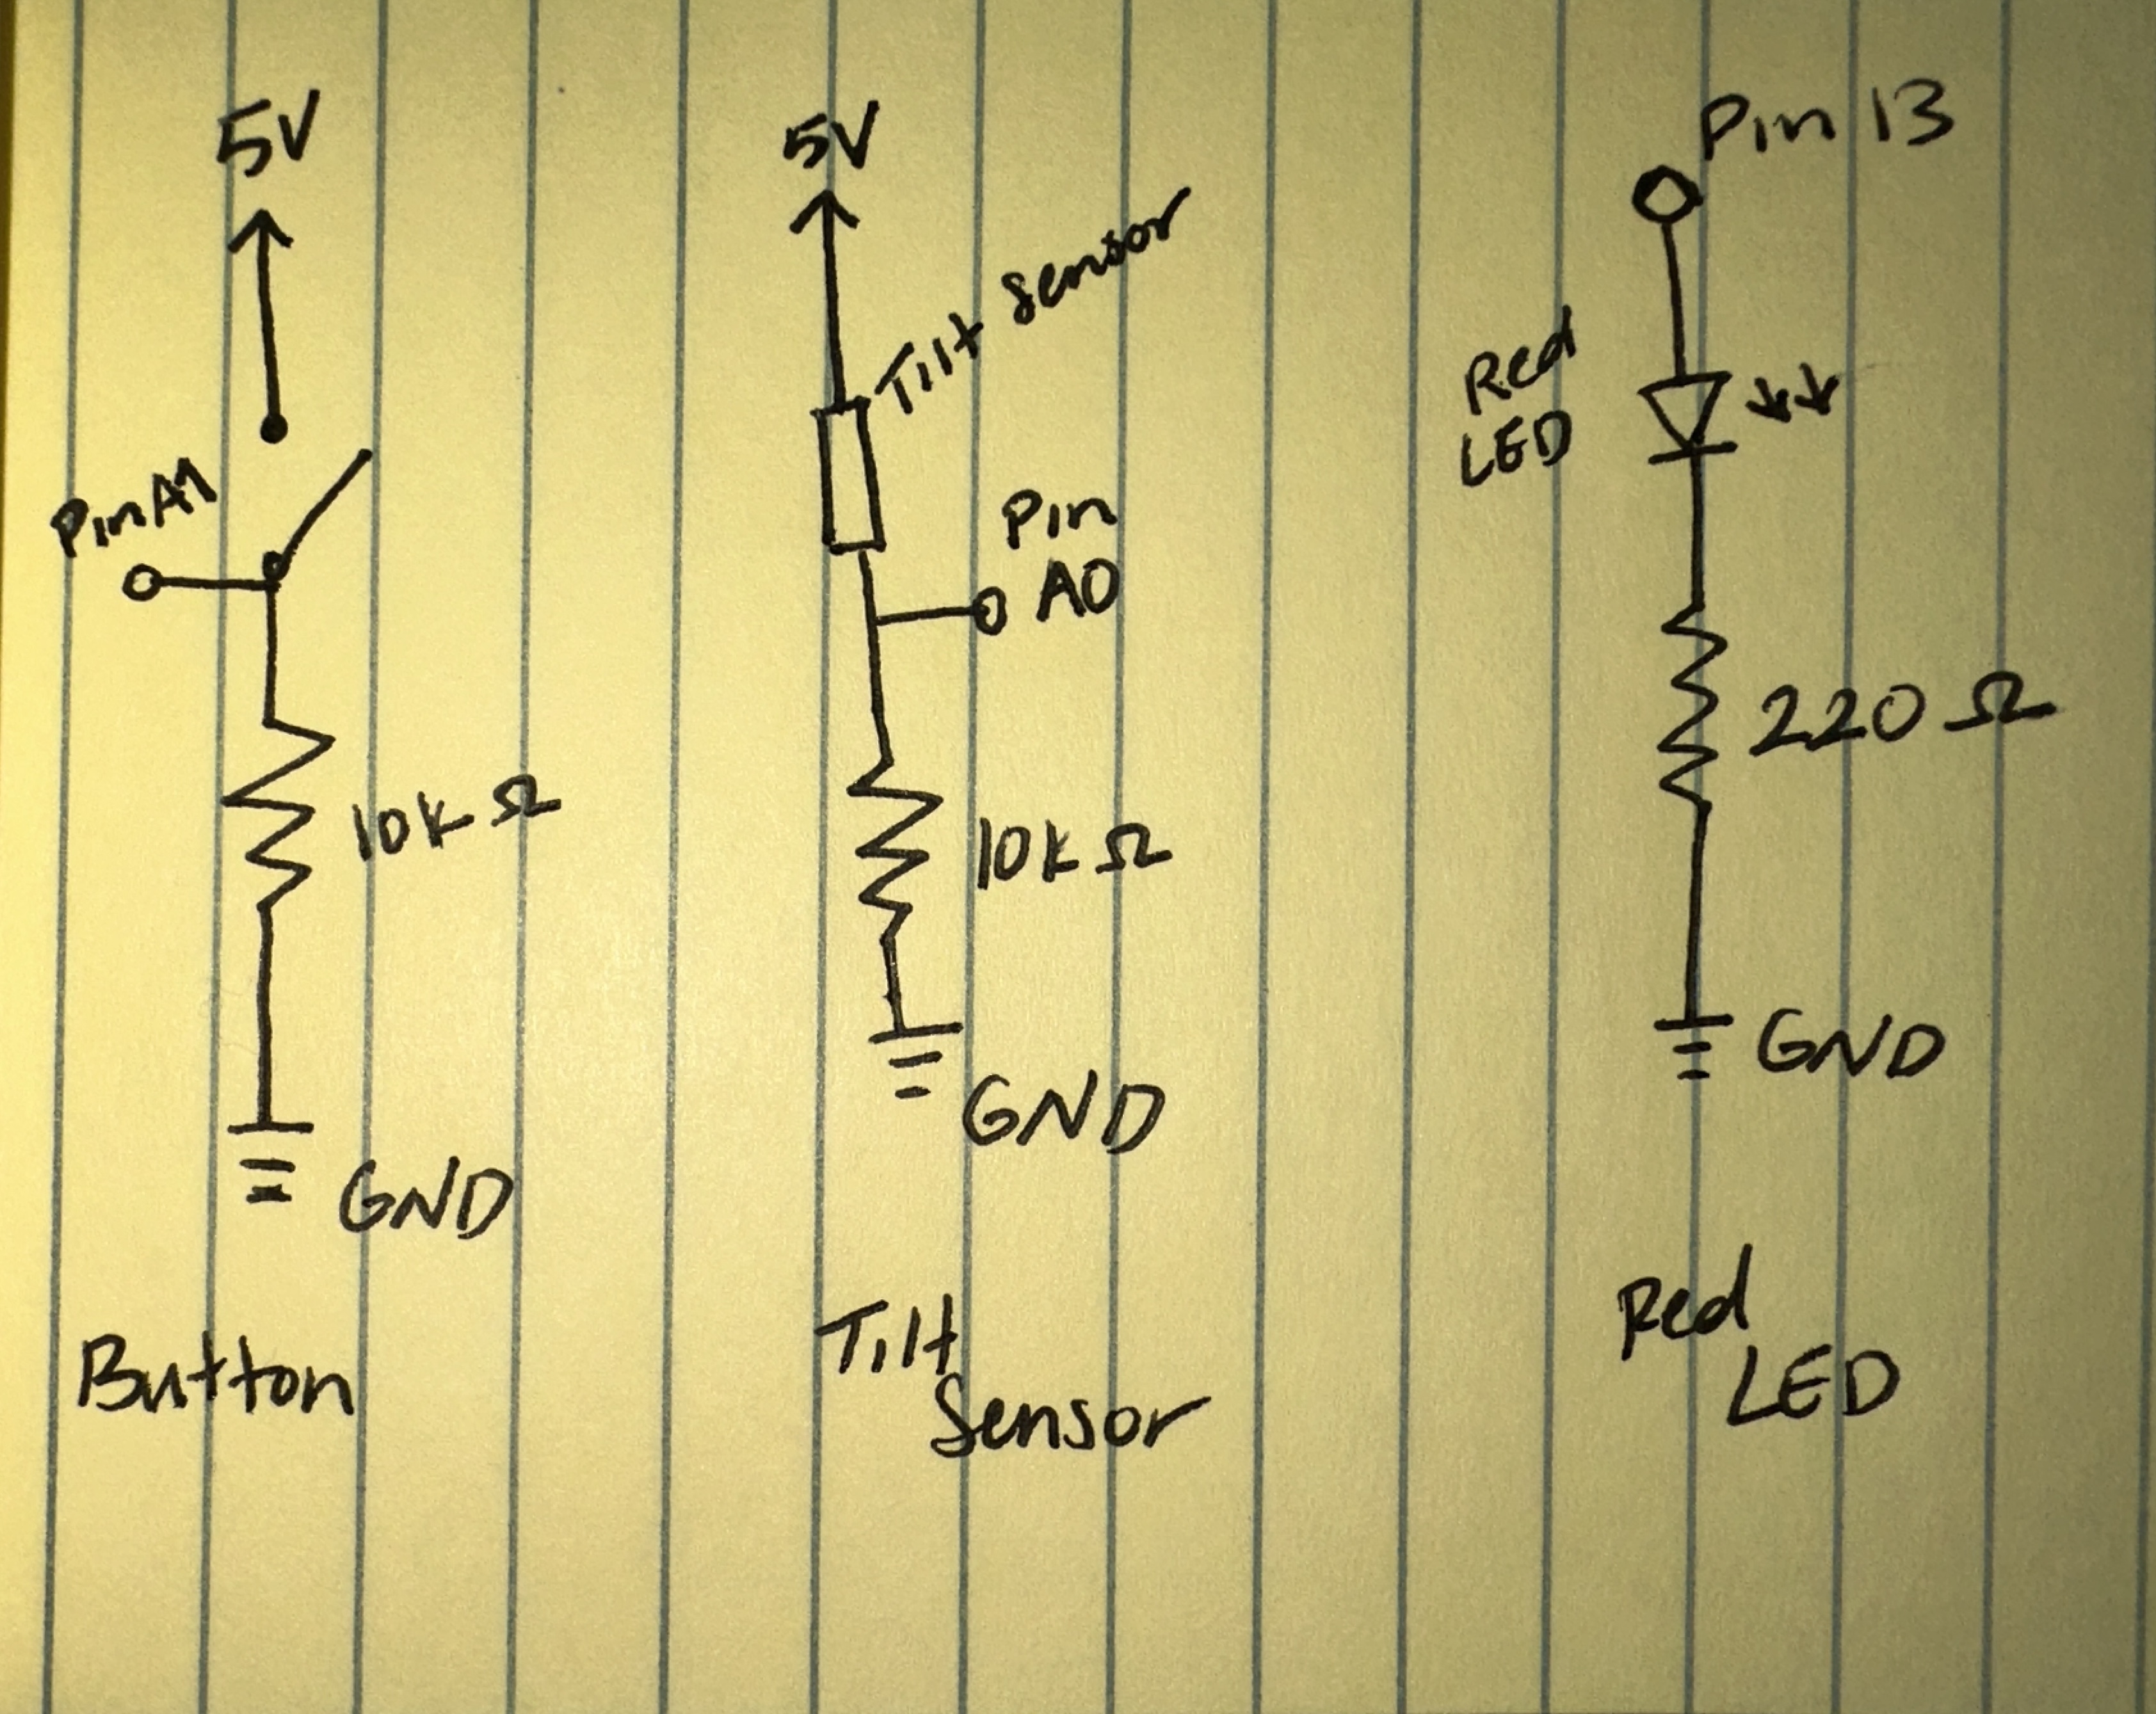 5V
Pin A1
10K Ω
GND
Button
5V
Tilt Sensor
Pin
A0
10K Ω
GND
Tilt
Sensor
Pin 13
Red
LED
220 Ω
GND
Red
LED